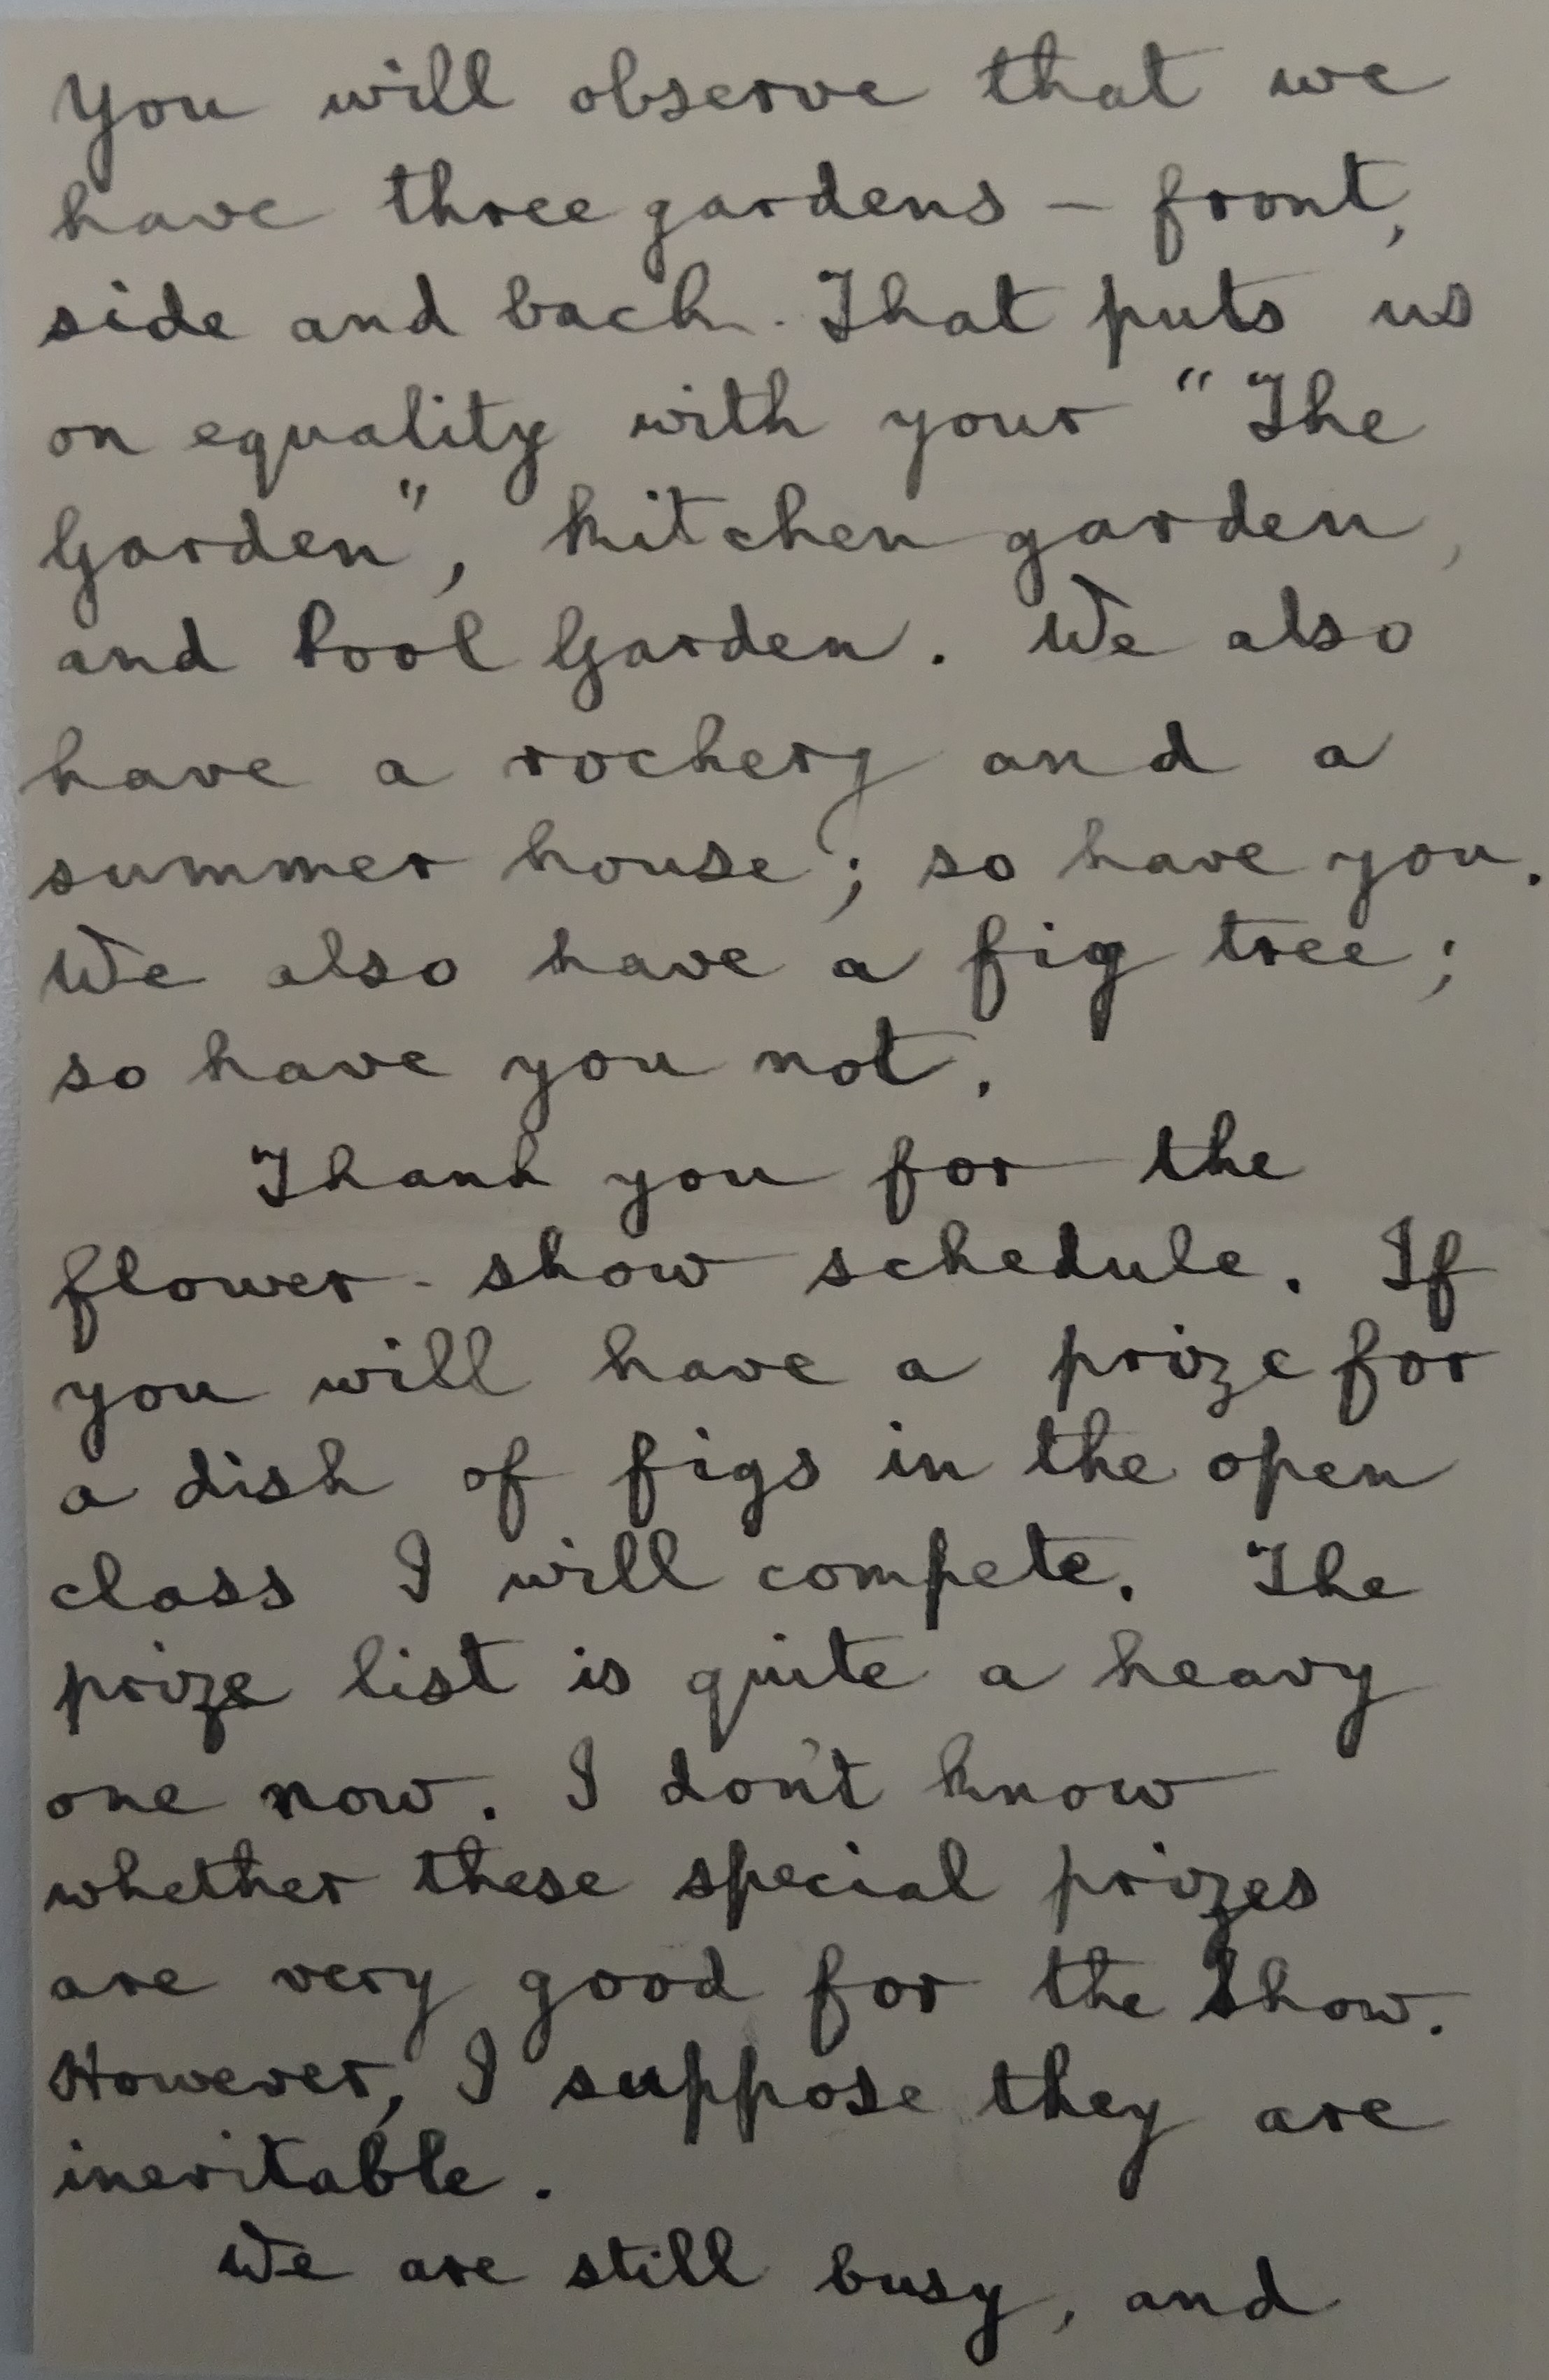 You will observe that we
have three gardens – front,
side and back. That puts us
on equality with your "The
Garden", kitchen garden,
and Pool Garden. We also
have a rockery and a
summer house; so have you.
We also have a fig tree;
so have you not.
Thank you for the
flower-show schedule. If
you will have a prize for
a dish of figs in the open
class I will compete. The
prize list is quite a heavy
one now. I don't know
whether these special prizes
are very good for the Show.
However, I suppose they are
inevitable.
We are still busy, and